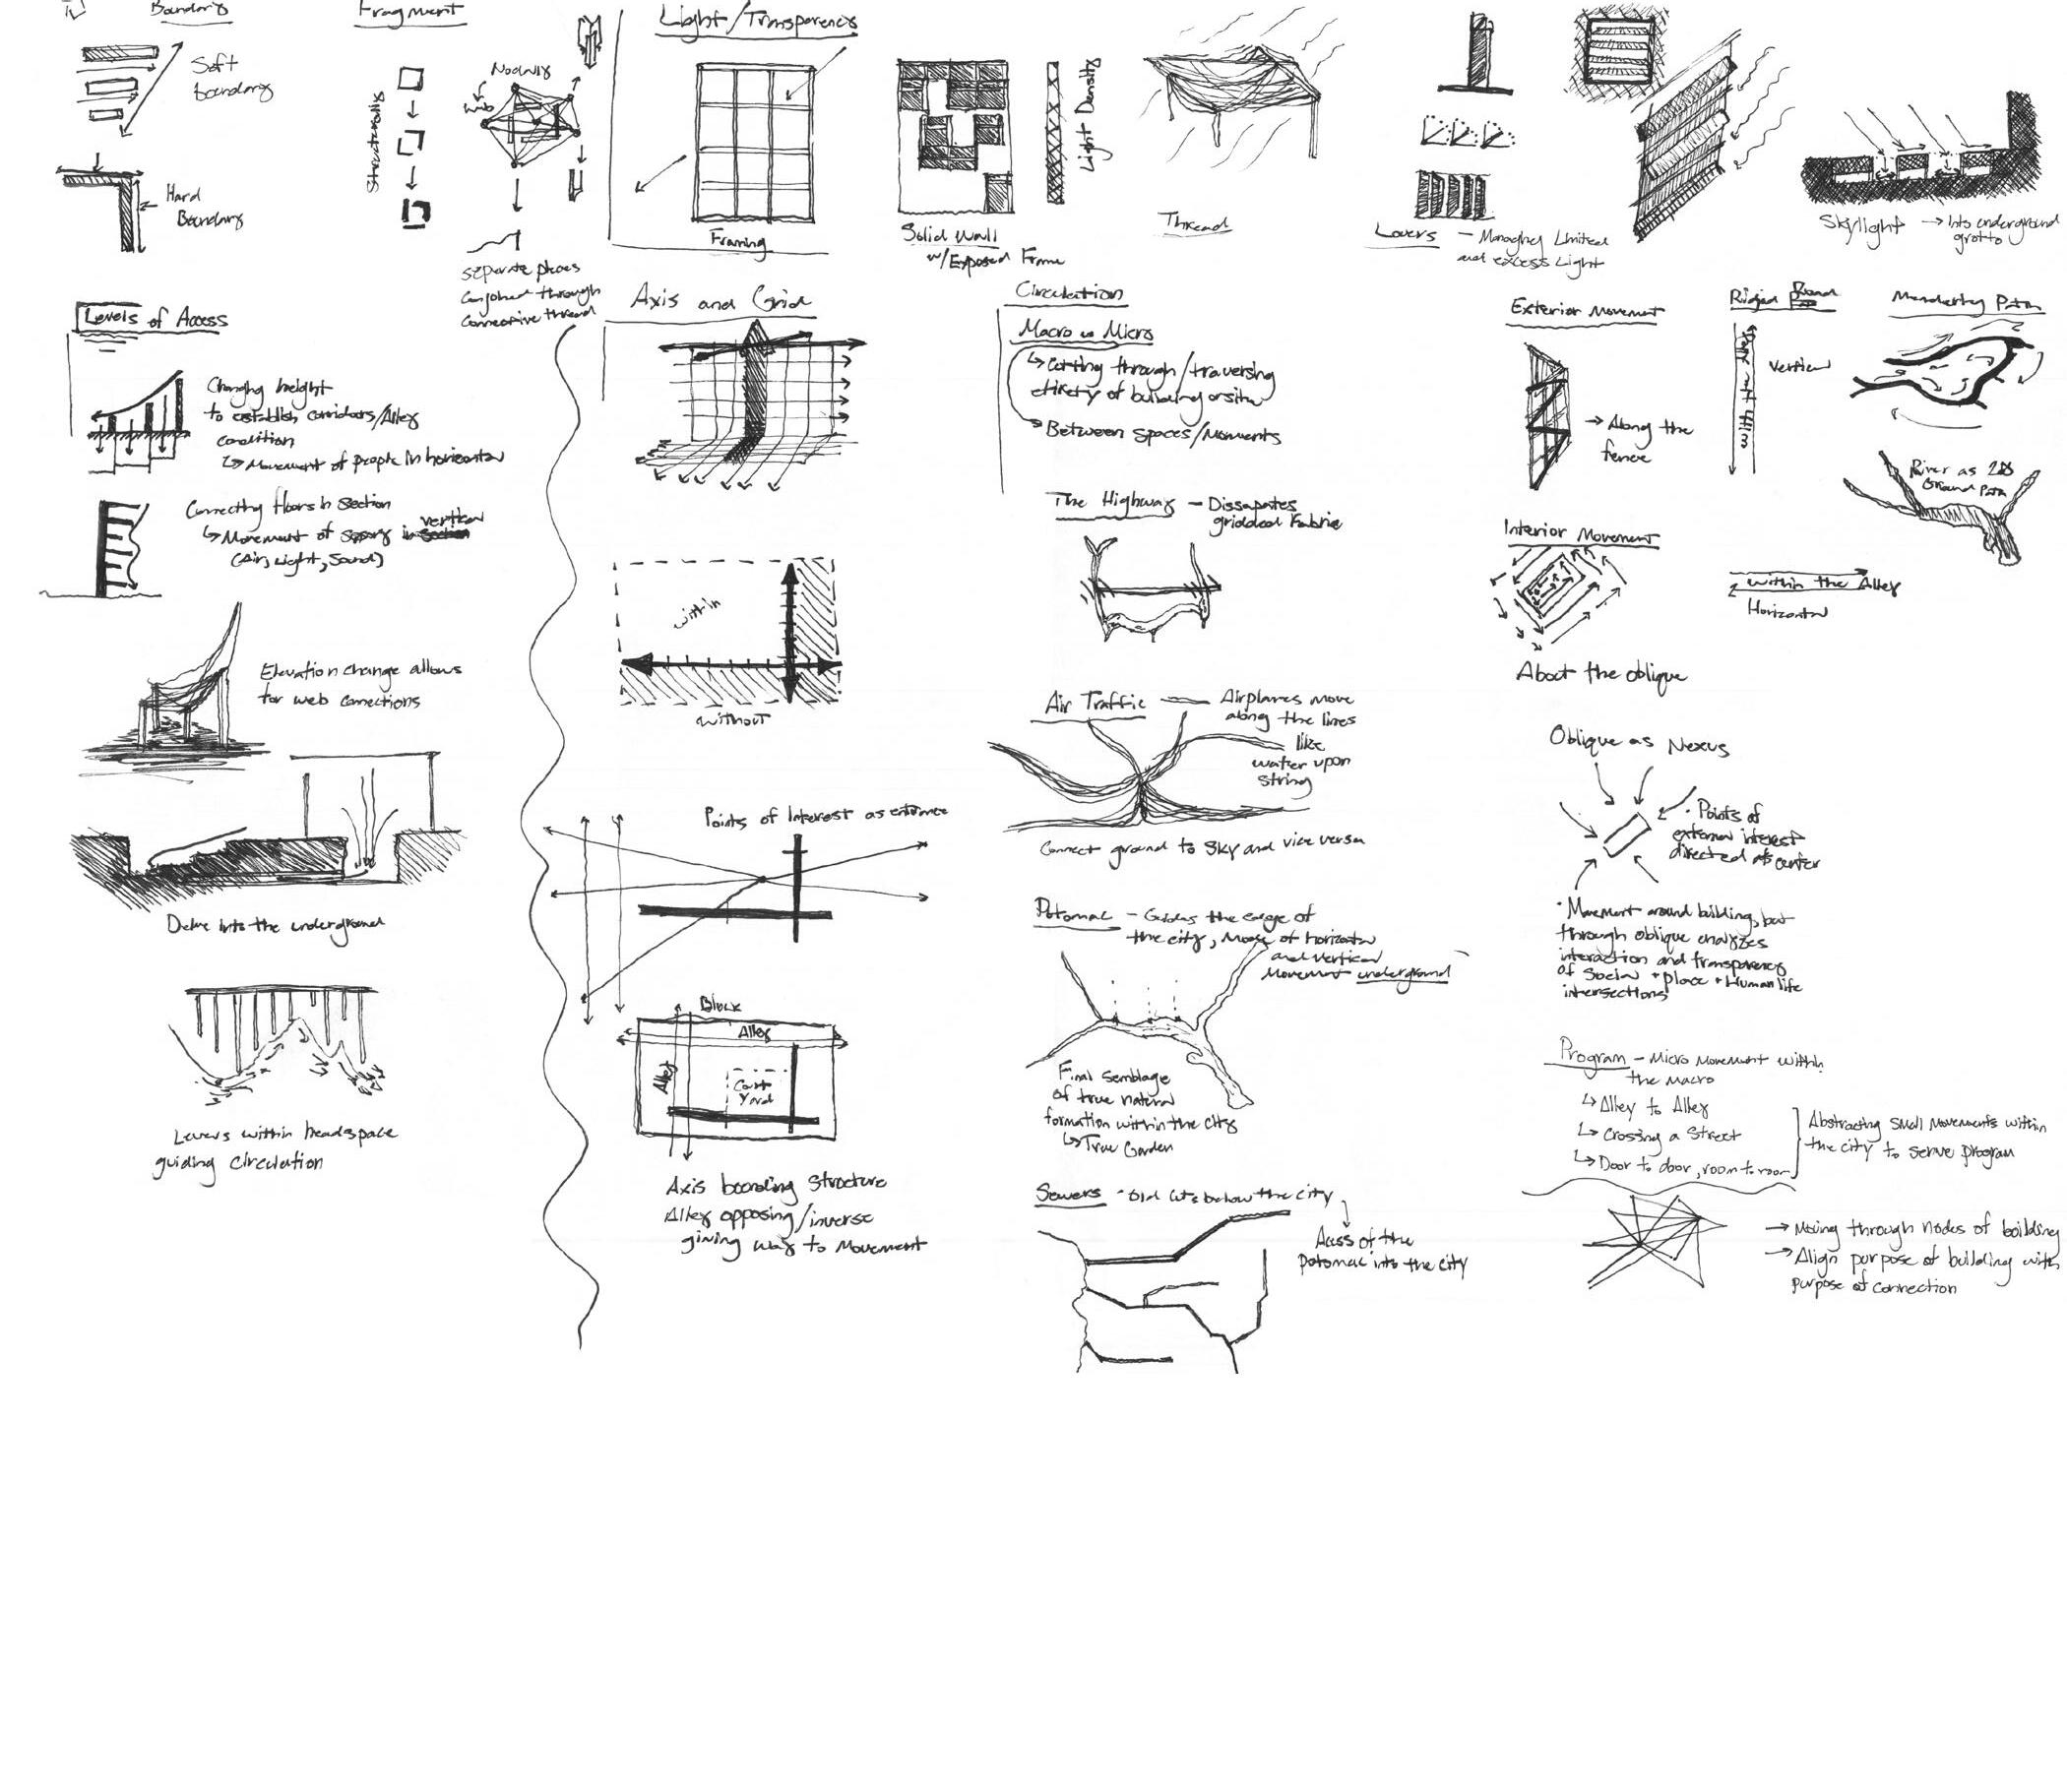 Boundary
Soft
boundary
Hard
Boundary
Fragment
Structurally
Nodviz
web
separate places
conjoined through
connective thread
Light/Transparency
Framing
Solid Wall
w/Exposed Frame
Light Density
Thread
Lovers - Managing Limited
and excess Light
Skylight → Into underground
grotto
Levels of Access
Changing height
to establish corridors/Alley
condition
↳ Movement of people in horizontal
Connecting floors in Section
↳ Movement of in vertical
(Air, Light, Sound)
Elevation change allows
for web connections
Delve into the underground
Levers within headspace
guiding circulation
Axis and Grid
within
without
Points of Interest as entrance
Block
Alley
Alley
Court
Yard
Axis bounding Structure
Alley opposing/inverse
giving way to Movement
Circulation
Macro vs Micro
↳ Cutting through/traversing
etirety of building or site
Between Spaces/Moments
The Highway - Dissapates
gridded Fabric
Air Traffic - Airplanes move
along the lines
like
water upon
string
Connect ground to Sky and vice versa
Potomac - Guides the edge of
the city, of horizontal
and vertical
Movement underground
Final Semblage
of true natural
formation within the city
↳ True Garden
Sewers - Old cuts below the city
Access of the
potomac into the city
Exterior Movement
→ Along the
fence
Interior Movement
About the oblique
Ridged
vertical
within the Alley
Horizontal
Meandering Path
River as
Ground Path
Oblique as Nexus
· Points of
external interest
directed at center
· Movement around building, but
through oblique
interaction and transparency
of Social + place + Human life
intersections
Program - Micro Movement within
the Macro
↳ Alley to Alley
↳ Crossing a Street
↳ Door to door, room to room
Abstracting Small Movements within
the city to serve program
→ Moving through nodes of building
→ Align purpose of building with
purpose of connection